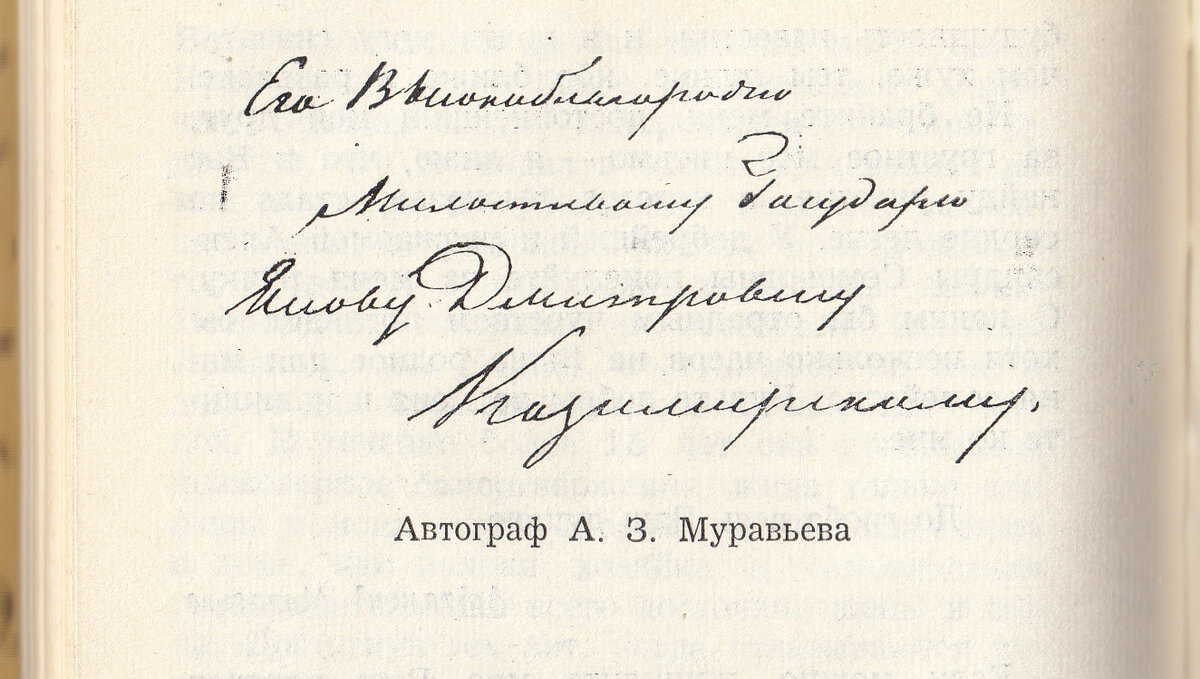 Его Высокоблагородию
Милостивому Государю
Якову Дмитриевичу
Казимирскому.
Автограф А. З. Муравьева